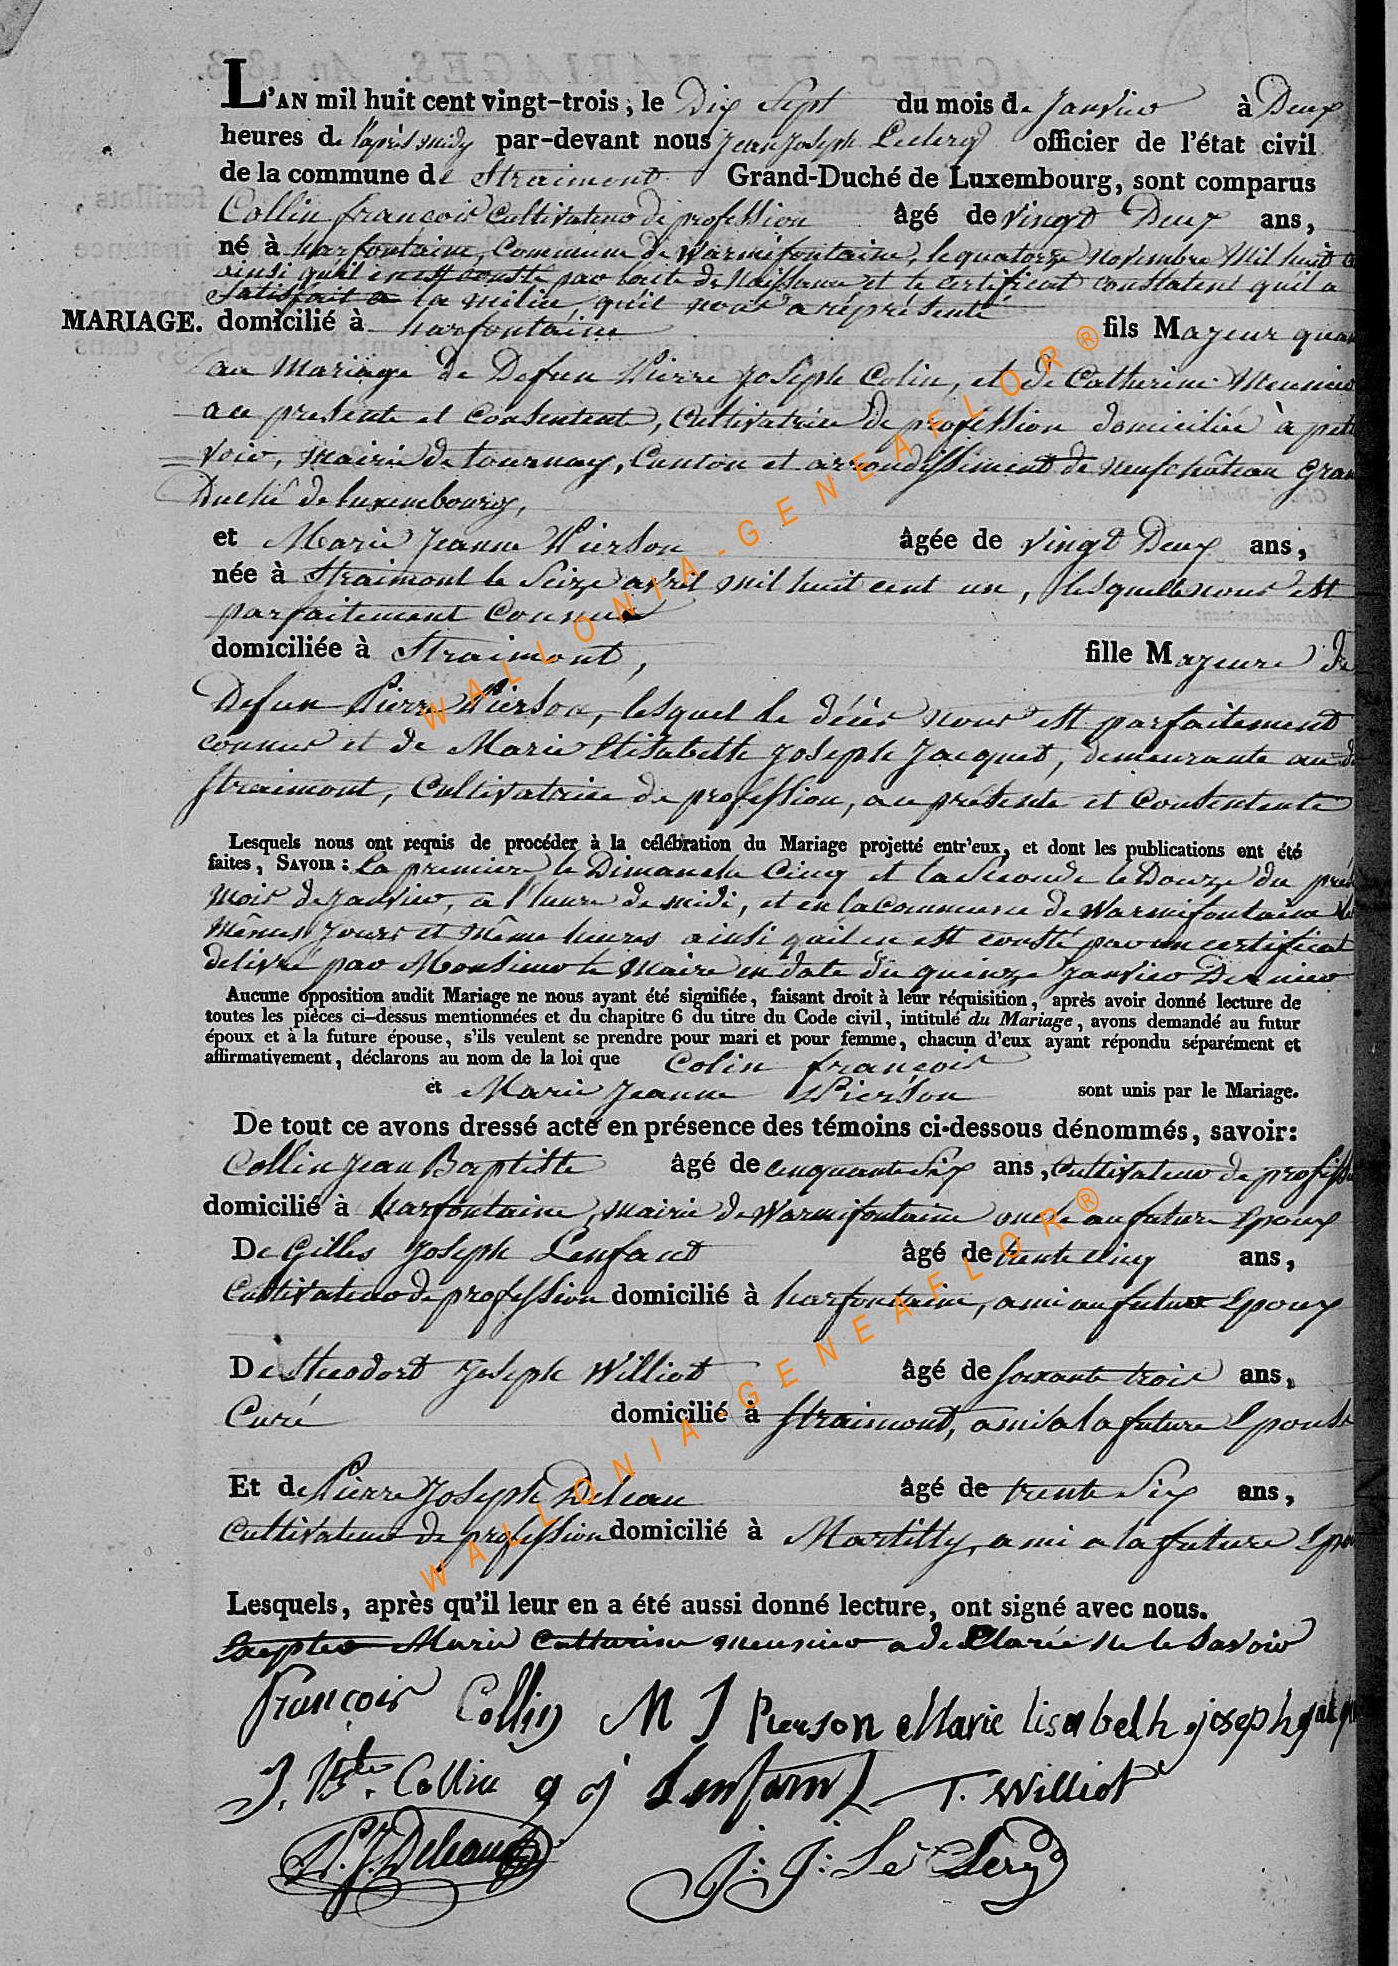 L'AN mil huit cent vingt-trois, le Dix Sept du mois de Janvier à Deux
heures de l'après midy par-devant nous Jean Joseph Leclercq officier de l'état civil
de la commune de Straimont Grand-Duché de Luxembourg, sont comparus
Collin francois Cultivateur de profession âgé de vingt Deux ans,
né à harfontaine, Commune de Warmifontaine, le quatorze Novembre Mil huit
ainsi qu'il en est consté par l'acte de Naissance et le certificat constatent qu'il a
Satisfait a la milice, qu'il nous a réprésenté
MARIAGE. domicilié à harfontaine fils Majeur quan
au Mariage de Defun Pierre Joseph Colin, et de Catherine Meunier
a ce presente et Consentente, Cultivatrice de profession domiciliée à petit
voir, Mairie de tournay, Canton et arrondissiment de neufchâteau Gran
Duché de luxembourg,
et Marie Jeanne Pierson âgée de vingt Deux ans,
née à Straimont le Seize avril mil huit cent un, lesquelle nous est
parfaitement Connue
domiciliée à Straimont, fille Majeure de
Defun Pierre Pierson, lesquel le décès nous est parfaitement
connus et de Marie Elisabeth Joseph Jacquet, demeurante au d
Straimont, Cultivatrice de profession, a ce présente et Consentente
Lesquels nous ont requis de procéder à la célébration du Mariage projetté entr'eux, et dont les publications ont été
faites, SAVOIR : La premiere le Dimanche Cinq et la Seconde le Douze du prés
Mois de Janvier, a l'heure de midi, et en la commune de Warmifontaine les
Mêmes Jours et Même heures ainsi qu'il en est consté par un certificat
delivré par Monsieur le Maire en date du quinze Janvier Dernier
Aucune opposition audit Mariage ne nous ayant été signifiée, faisant droit à leur réquisition, après avoir donné lecture de
toutes les pièces ci-dessus mentionnées et du chapitre 6 du titre du Code civil, intitulé du Mariage, avons demandé au futur
époux et à la future épouse, s'ils veulent se prendre pour mari et pour femme, chacun d'eux ayant répondu séparément et
affirmativement, déclarons au nom de la loi que Colin francois
et Marie Jeanne Pierson sont unis par le Mariage.
De tout ce avons dressé acte en présence des témoins ci-dessous dénommés, savoir:
Collin Jean Baptiste âgé de cinquante Six ans, Cultivateur de professi
domicilié à harfontaine, mairie de Warmifontaine oncle au future Epoux
De Gilles Joseph Lenfant âgé de trente Cinq ans,
Cultivateur de profession domicilié à harfontaine, ami au future Epoux
De Theodort Joseph Williot âgé de soixante trois ans,
Curé domicilié à Straimont, ami a la future Epouse
Et de Pierre Joseph Deleau âgé de trente Six ans,
Cultivateur de profession domicilié à Martilly, ami a la future Epou
Lesquels, après qu'il leur en a été aussi donné lecture, ont signé avec nous.
Excepter Marie Catherine Meunier a declarée ne le Savoir
François Collin M J Pierson Marie Lisabeth joseph
J. Bte. Collin g j Lenfant T. Williot
P. J. Deleau J: J: Le Clerq
WALLONIA-GENEAFLOR®
WALLONIA-GENEAFLOR®